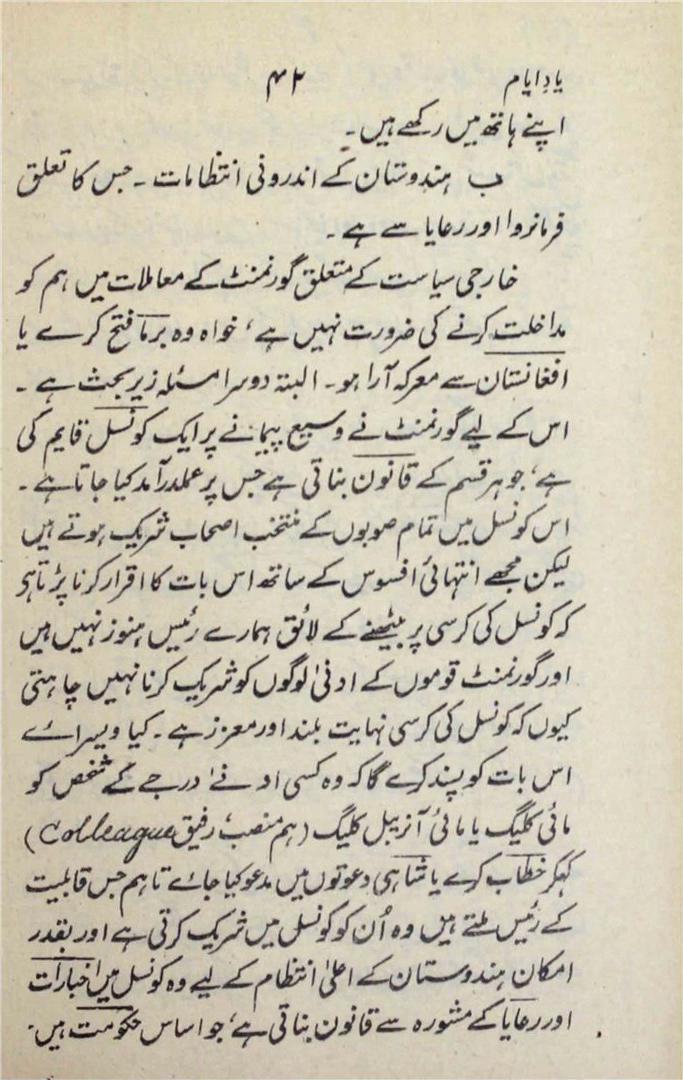 یادِ ایام ۴۲
اپنے ہاتھ میں رکھے ہیں۔
ب ہندوستان کے اندرونی انتظامات۔ جس کا تعلق
فرمانروا اور رعایا سے ہے۔
خارجی سیاست کے متعلق گورنمنٹ کے معاملات میں ہم کو
مداخلت کرنے کی ضرورت نہیں ہے، خواہ وہ برما فتح کرے یا
افغانستان سے معرکہ آرا ہو۔ البتہ دوسرا مسئلہ زیر بحث ہے۔
اس کے لیے گورنمنٹ نے وسیع پیمانے پر ایک کونسل قایم کی
ہے، جو ہر قسم کے قانون بناتی ہے جس پر عملدرآمد کیا جاتا ہے۔
اس کونسل میں تمام صوبوں کے منتخب اصحاب شریک ہوتے ہیں
لیکن مجھے انتہائی افسوس کے ساتھ اس بات کا اقرار کرنا پڑتا ہی
کہ کونسل کی کرسی پر بیٹھنے کے لائق ہمارے رئیس ہنوز نہیں ہیں
اور گورنمنٹ قوموں کے ادنیٰ لوگوں کو شریک کرنا نہیں چاہتی
کیوں کہ کونسل کی کرسی نہایت بلند اور معزز ہے۔ کیا ویسراے
اس بات کو پسند کرے گا کہ وہ کسی ادنےٰ درجے کے شخص کو
مائی کلیگ یا مائی آنریبل کلیگ (ہم منصب رفیق Colleague)
کہکر خطاب کرے یا شاہی دعوتوں میں مدعو کیا جاے تاہم جس قابلیت
کے رئیس ملتے ہیں وہ اُن کو کونسل میں شریک کرتی ہے اور بقدر
امکان ہندوستان کے اعلیٰ انتظام کے لیے وہ کونسل میں اخبارات
اور رعایا کے مشورہ سے قانون بناتی ہے، جو اساس حکومت ہیں۔